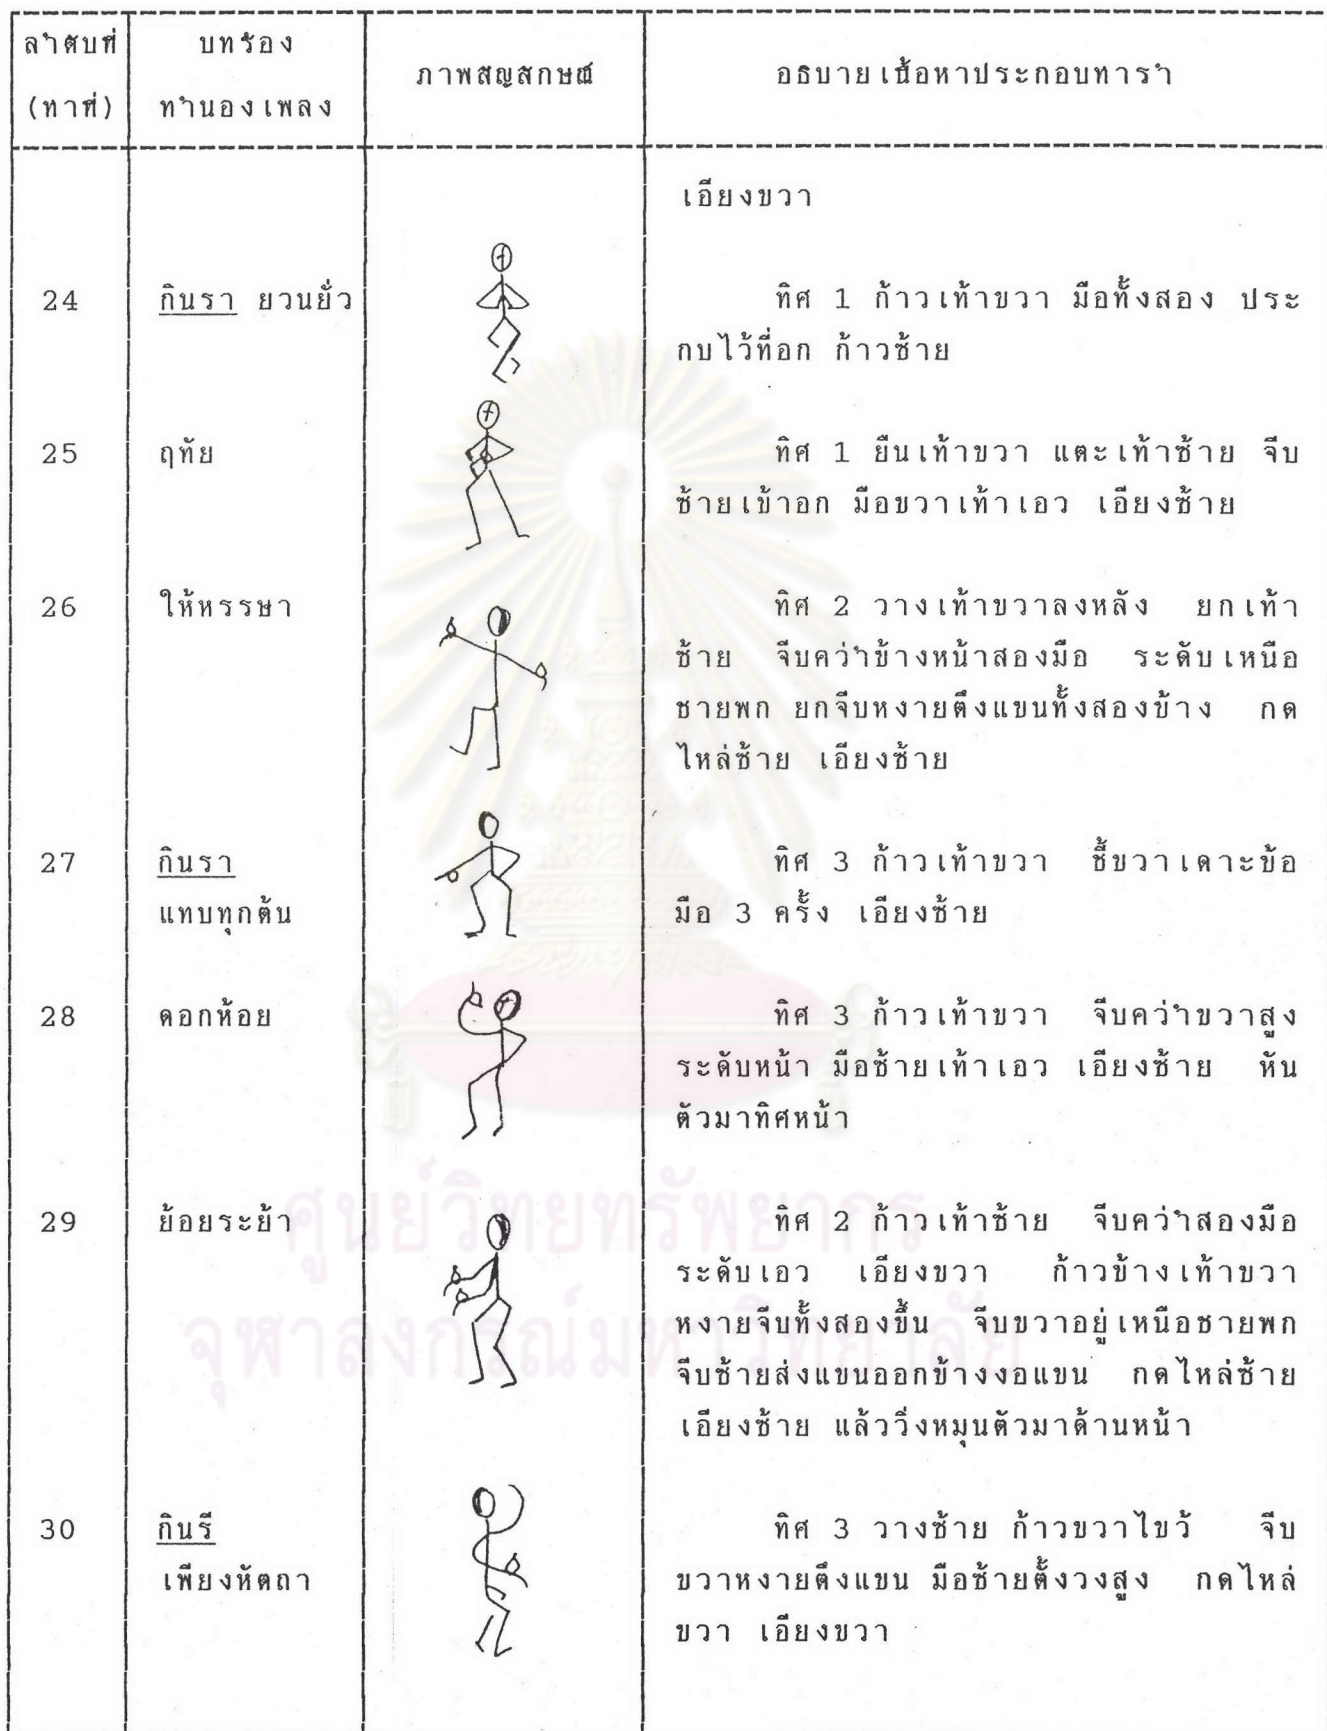 ลำดับที่ บทร้อง ภาพสัญลักษณ์ อธิบายเนื้อหาประกอบท่ารำ
(ท่าที่) ทำนองเพลง
เอียงขวา
24 กินรา ยวนยั่ว ทิศ 1 ก้าวเท้าขวา มือทั้งสอง ประ
กบไว้ที่อก ก้าวซ้าย
25 ฤทัย ทิศ 1 ยืนเท้าขวา แตะเท้าซ้าย จีบ
ซ้ายเข้าอก มือขวาเท้าเอว เอียงซ้าย
26 ให้หรรษา ทิศ 2 วางเท้าขวาลงหลัง ยกเท้า
ซ้าย จีบคว่ำข้างหน้าสองมือ ระดับเหนือ
ชายพก ยกจีบหงายตึงแขนทั้งสองข้าง กด
ไหล่ซ้าย เอียงซ้าย
27 กินรา ทิศ 3 ก้าวเท้าขวา ชี้ขวาเดาะข้อ
แทบทุกต้น มือ 3 ครั้ง เอียงซ้าย
28 ดอกห้อย ทิศ 3 ก้าวเท้าขวา จีบคว่ำขวาสูง
ระดับหน้า มือซ้ายเท้าเอว เอียงซ้าย หัน
ตัวมาทิศหน้า
29 ย้อยระย้า ทิศ 2 ก้าวเท้าซ้าย จีบคว่ำสองมือ
ระดับเอว เอียงขวา ก้าวข้างเท้าขวา
หงายจีบทั้งสองขึ้น จีบขวาอยู่เหนือชายพก
จีบซ้ายส่งแขนออกข้างงอแขน กดไหล่ซ้าย
เอียงซ้าย แล้ววิ่งหมุนตัวมาด้านหน้า
30 กินรี ทิศ 3 วางซ้าย ก้าวขวาไขว้ จีบ
เพียงหัตถา ขวาหงายตึงแขน มือซ้ายตั้งวงสูง กดไหล่
ขวา เอียงขวา
ศูนย์วิทยทรัพยากร
จุฬาลงกรณ์มหาวิทยาลัย